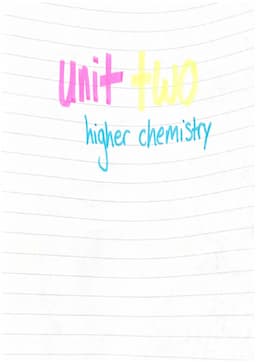 unit two
higher chemistry